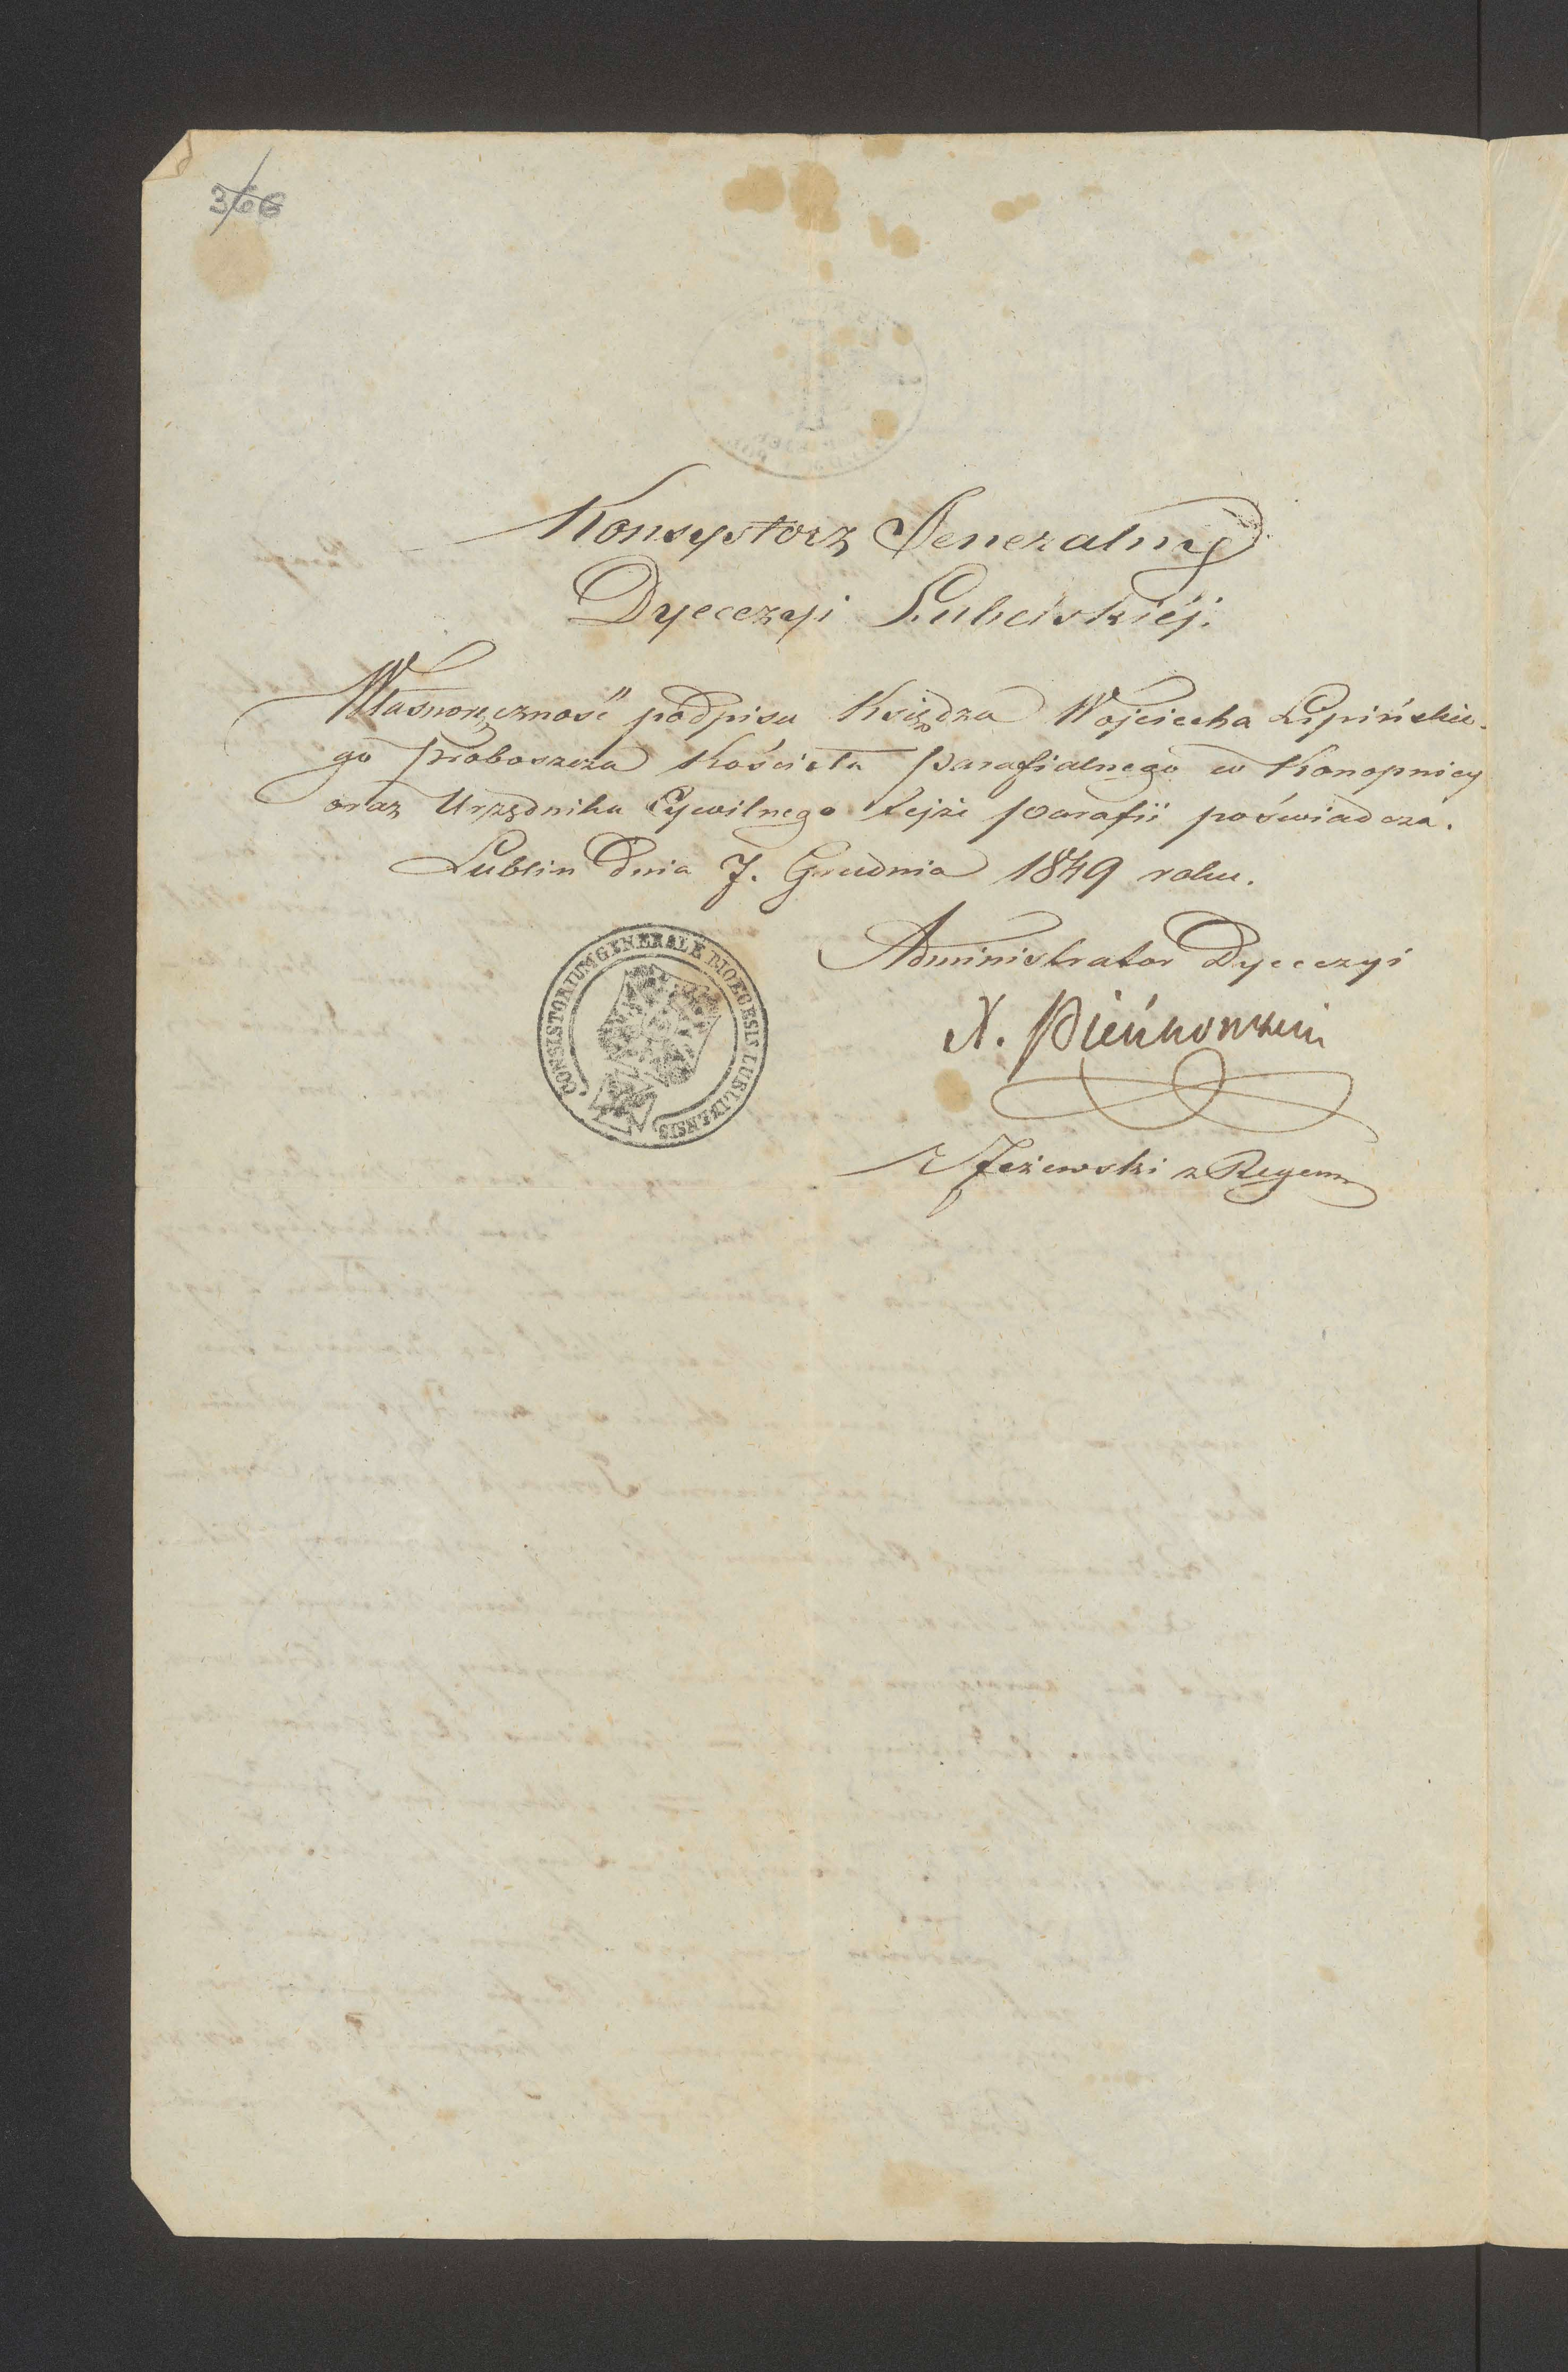 366
Konsystorz Jeneralny
Dyecezyi Lubelskiéj.
Własnoręczność podpisu Księdza Wojciecha Lipińskie-
go Proboszcza Kościoła Parafialnego w Konopnicy
oraz Urzędnika Cywilnego tejże parafii poświadcza.
Lublin dnia 7. Grudnia 1849 roku.
Administrator Dyecezyi
X. Pieńkowski
Jeżewski z Regem
CONSISTORIUM GENERALE DIOECESIS LUBLINENSIS